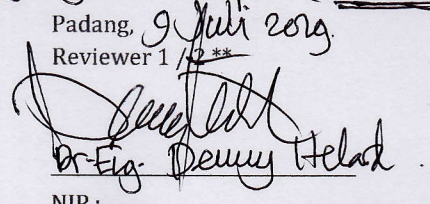 Padang, 9 Juli 2019.
Reviewer 1 / 2 **
Dr-Eig. Denny Helard.
NIP :